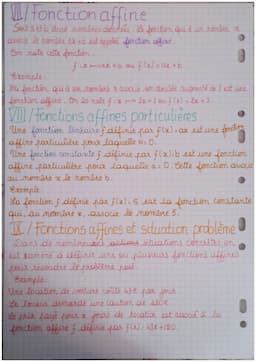 VII/Fonction affine
Soit a et b deux nombres connus. La fonction qui à un nombre x
associe le nombre ax+b est appelée fonction affine.
On note cette fonction :
f : x ⟼ ax+b ou f(x)=ax+b
Exemple
La fonction qui à un nombre x associe son double augmenté de 7 est une
fonction affine. On la note f : x ⟼ 2x+7 ou f(x)=2x+7.
VIII/Fonctions affines particulières
Une fonction linéaire f définie par f(x)=ax est une fonction
affine particulière pour laquelle b=0.
Une fonction constante f définie par f(x)=b est une fonction
affine particulière pour laquelle a=0. Cette fonction associe
au nombre x le nombre b.
Exemple
La fonction f définie par f(x)=5 est la fonction constante
qui, au nombre x, associe le nombre 5.
IX/Fonctions affines et situation problème
Dans de nombreuses situations concrètes on
est amené à définir une ou plusieurs fonctions affines
pour résoudre le problème posé.
Exemple:
Une location de voiture coûte 43€ par jour.
Le loueur demande une caution de 180€.
Le prix payé pour x jours de location est associé à la
fonction affine f définie par f(x)=43x+180.